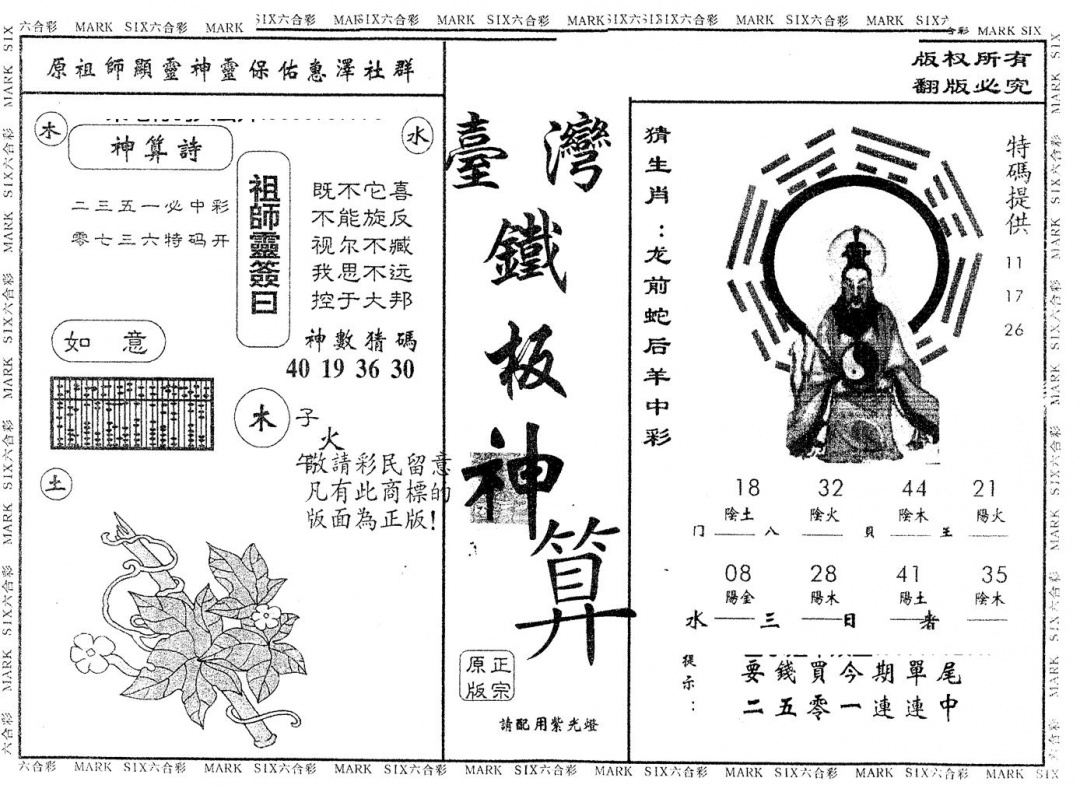 六合彩 MARK SIX六合彩 MARK SIX六合彩 MARK SIX六合彩 MARK SIX六合彩 MARK SIX六合彩 MARK SIX六合彩 MARK SIX
原祖師顯靈神靈保佑惠澤社群
木
水
神算詩
二三五一必中彩
零七三六特码开
祖師靈簽曰
既不它喜
不能旋反
视尔不臧
我思不远
控于大邦
神數猜碼
40 19 36 30
如意
木
子
火
午
敬請彩民留意
凡有此商標的
版面為正版!
土
臺灣
鐵
板
神
算
正宗
原版
請配用紫光燈
版权所有
翻版必究
猜生肖:龙前蛇后羊中彩
特碼提供
11
17
26
18 32 44 21
陰土 陰火 陰木 陽火
门 八 貝 王
08 28 41 35
陽金 陽木 陽土 陰木
水 三 日 者
提示:
要錢買今期單尾
二五零一連連中
六合彩 MARK SIX六合彩 MARK SIX六合彩 MARK SIX六合彩 MARK SIX六合彩 MARK SIX六合彩 MARK SIX六合彩 MARK SIX六合彩 MARK SIX